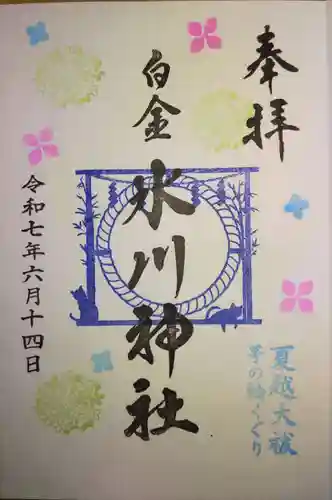 奉拝
白金
氷川神社
夏越大祓
茅の輪くぐり
令和七年六月十四日